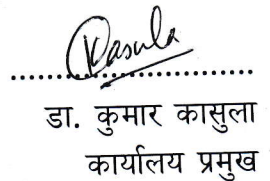 Kasula
..........................................
डा. कुमार कासुला
कार्यालय प्रमुख